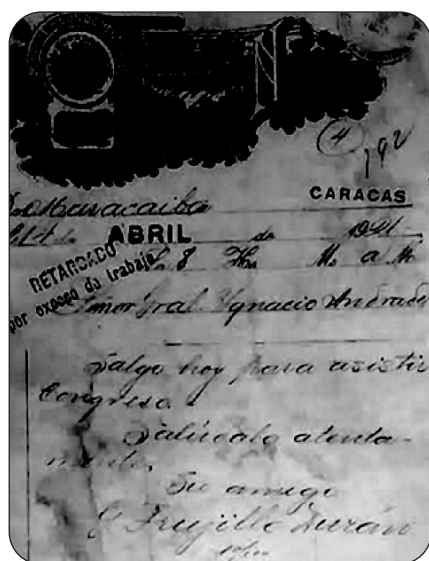 4
192
CARACAS
De Maracaibo
El 14 de ABRIL de
RETARDADO
por exceso de trabajo
Las 8 Hs Ms a M
Señor Gral. Ygnacio Andrade
Salgo hoy para asistir
Congreso.
Salúdalo atenta-
mente,
Su amigo
Trujillo Durán